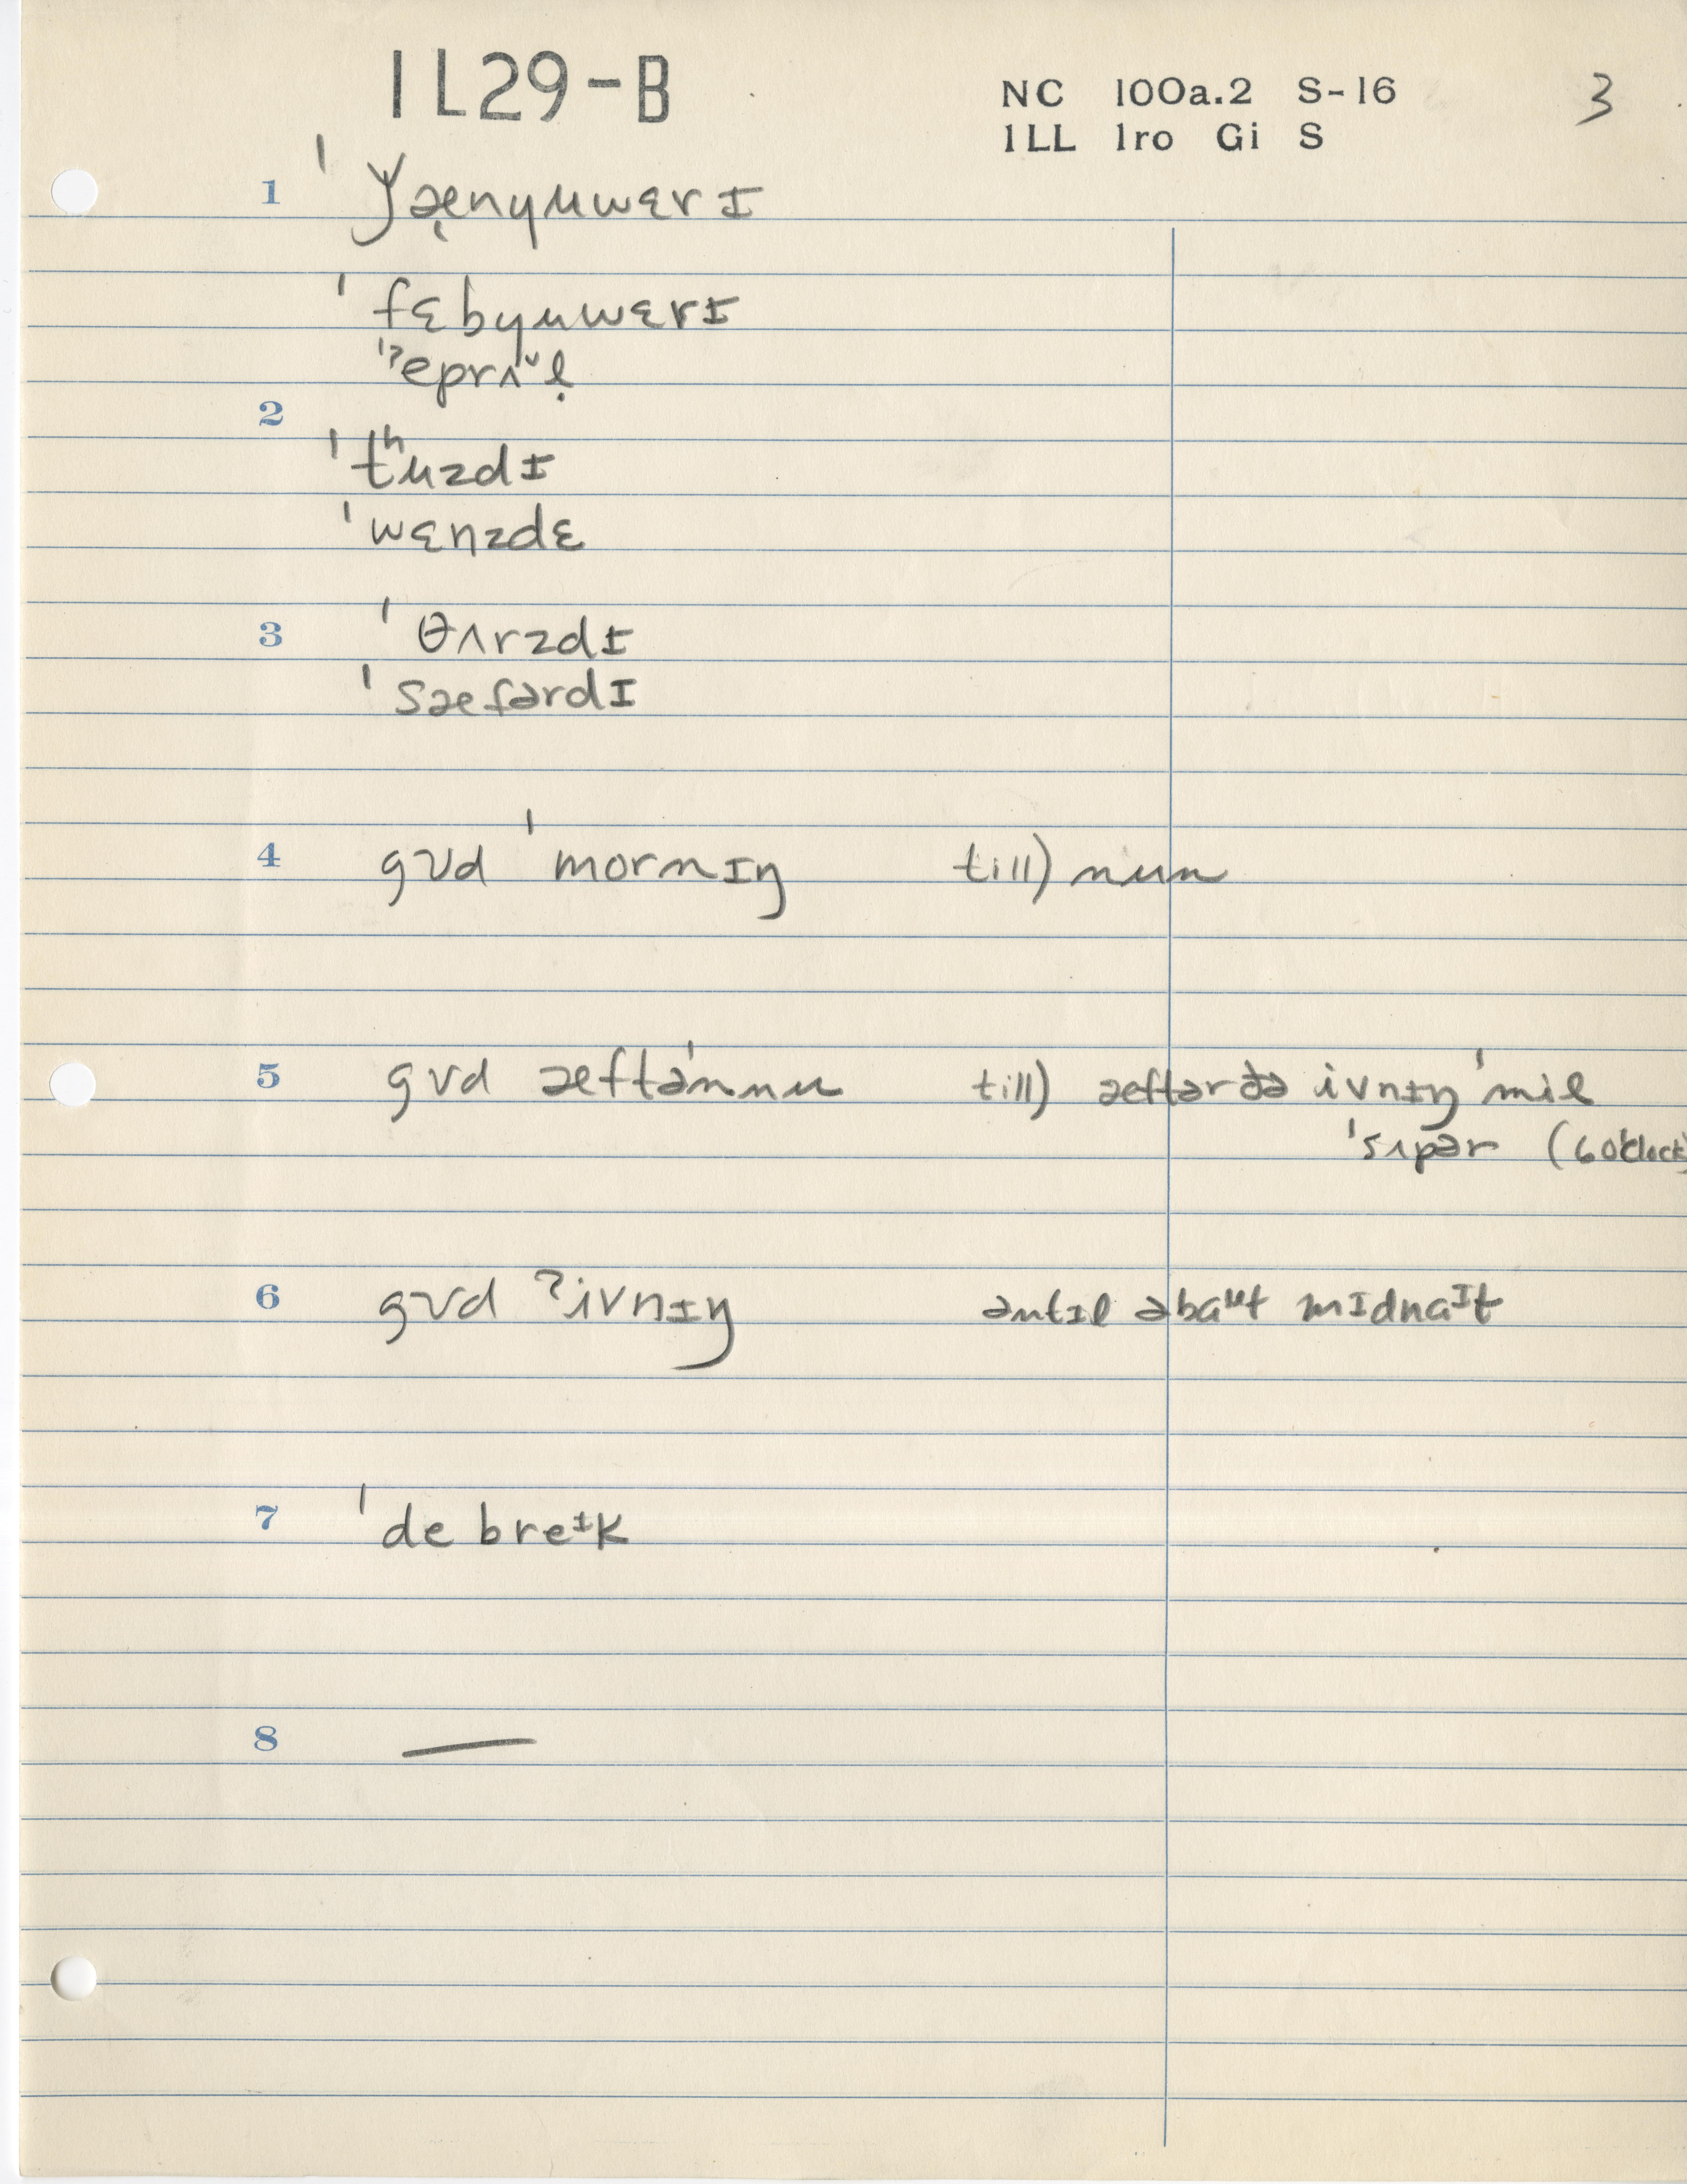 IL29-B
NC 100a.2 S-16 3
ILL Iro Gi S
1 ˈǰæ̨nyuwɛrɨ
ˈfɛbyuwɛrɨ
ˈʔeprʌᵛl̩
2
ˈtʰuzdɨ
ˈwɛnzdɛ
3 ˈθʌrzdɨ
ˈsæfərdɪ
4 gʊd ˈmornɪŋ till) nun
5 gʊd æftəˈnnu till) æftərðə ivnɨŋ ˈmil
ˈsʌpər (6 o'clock)
6 gʊd ʔivnɨŋ əntɪl əbaᵘt mɪdnaᶦt
7 ˈde breᶤk
8 —